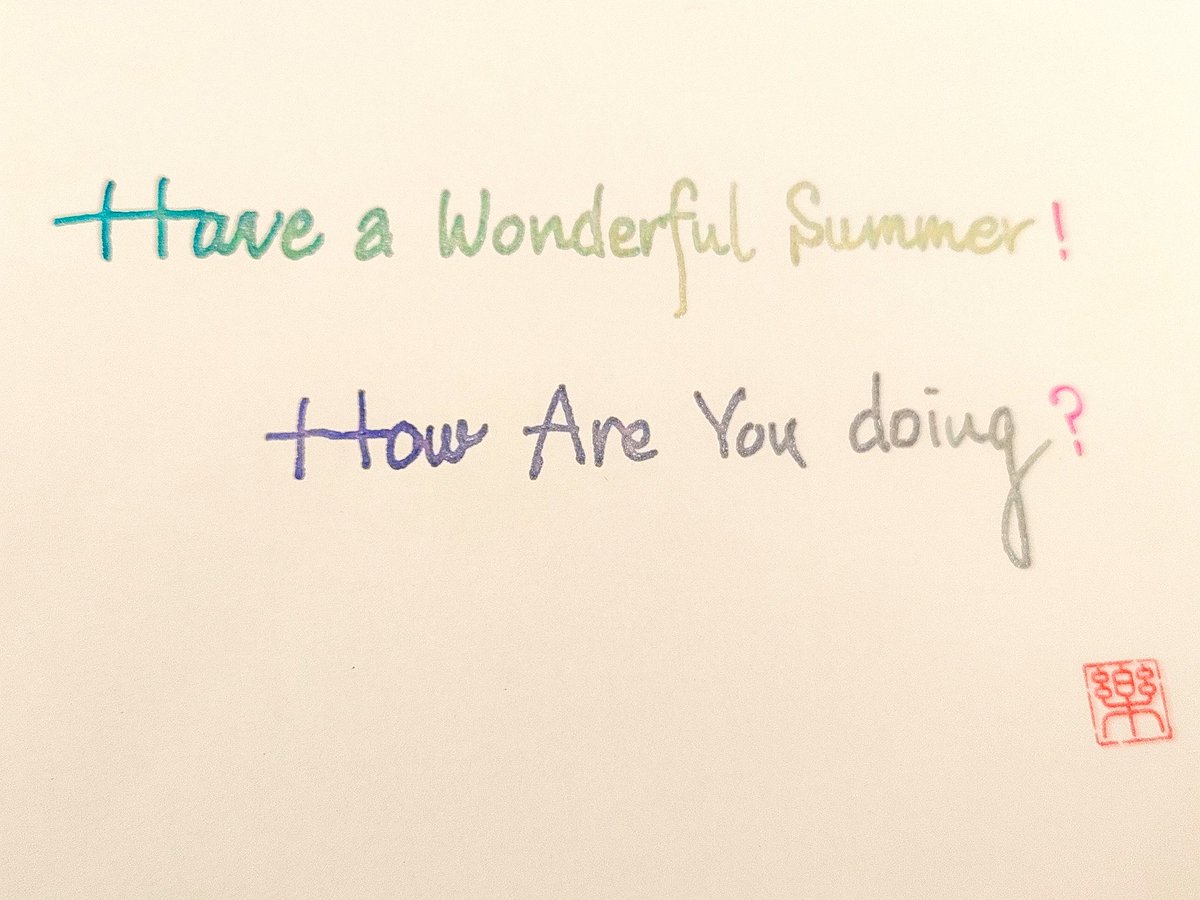 Have a Wonderful Summer!
How Are You doing?
樂